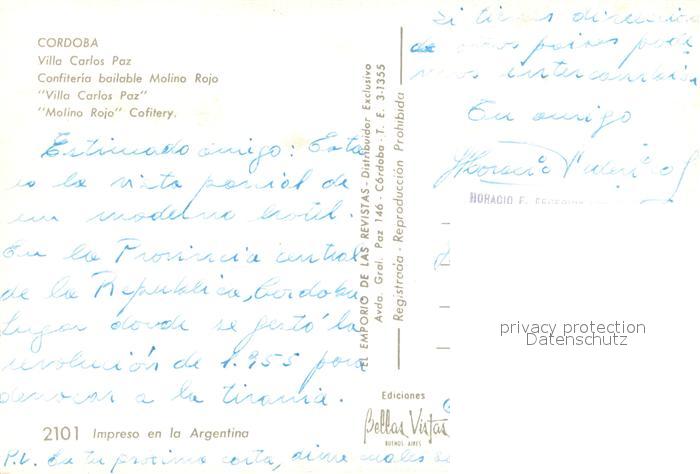 CORDOBA
Villa Carlos Paz
Confitería bailable Molino Rojo
"Villa Carlos Paz"
"Molino Rojo" Cofitery.
Estimado amigo: Esta
es la vista parcial de
un moderno hotel.
En la Provincia central
de la Republica, Cordoba
Lugar donde se gestó la
revolución de 1.955 para
derrocar a la tirania.
2101 Impreso en la Argentina
P.D. En tu proxima carta, dime cuales
EL EMPORIO DE LAS REVISTAS - Distribuidor Exclusivo
Avda. Gral. Paz 146 - Córdoba - T. E. 3-1355
Registrada - Reproducción Prohibida
Ediciones
Bellas Vistas
BUENOS AIRES
Si tienes direccion
de otros paises
intercambiar
Tu amigo
Horacio
HORACIO F.
privacy protection
Datenschutz